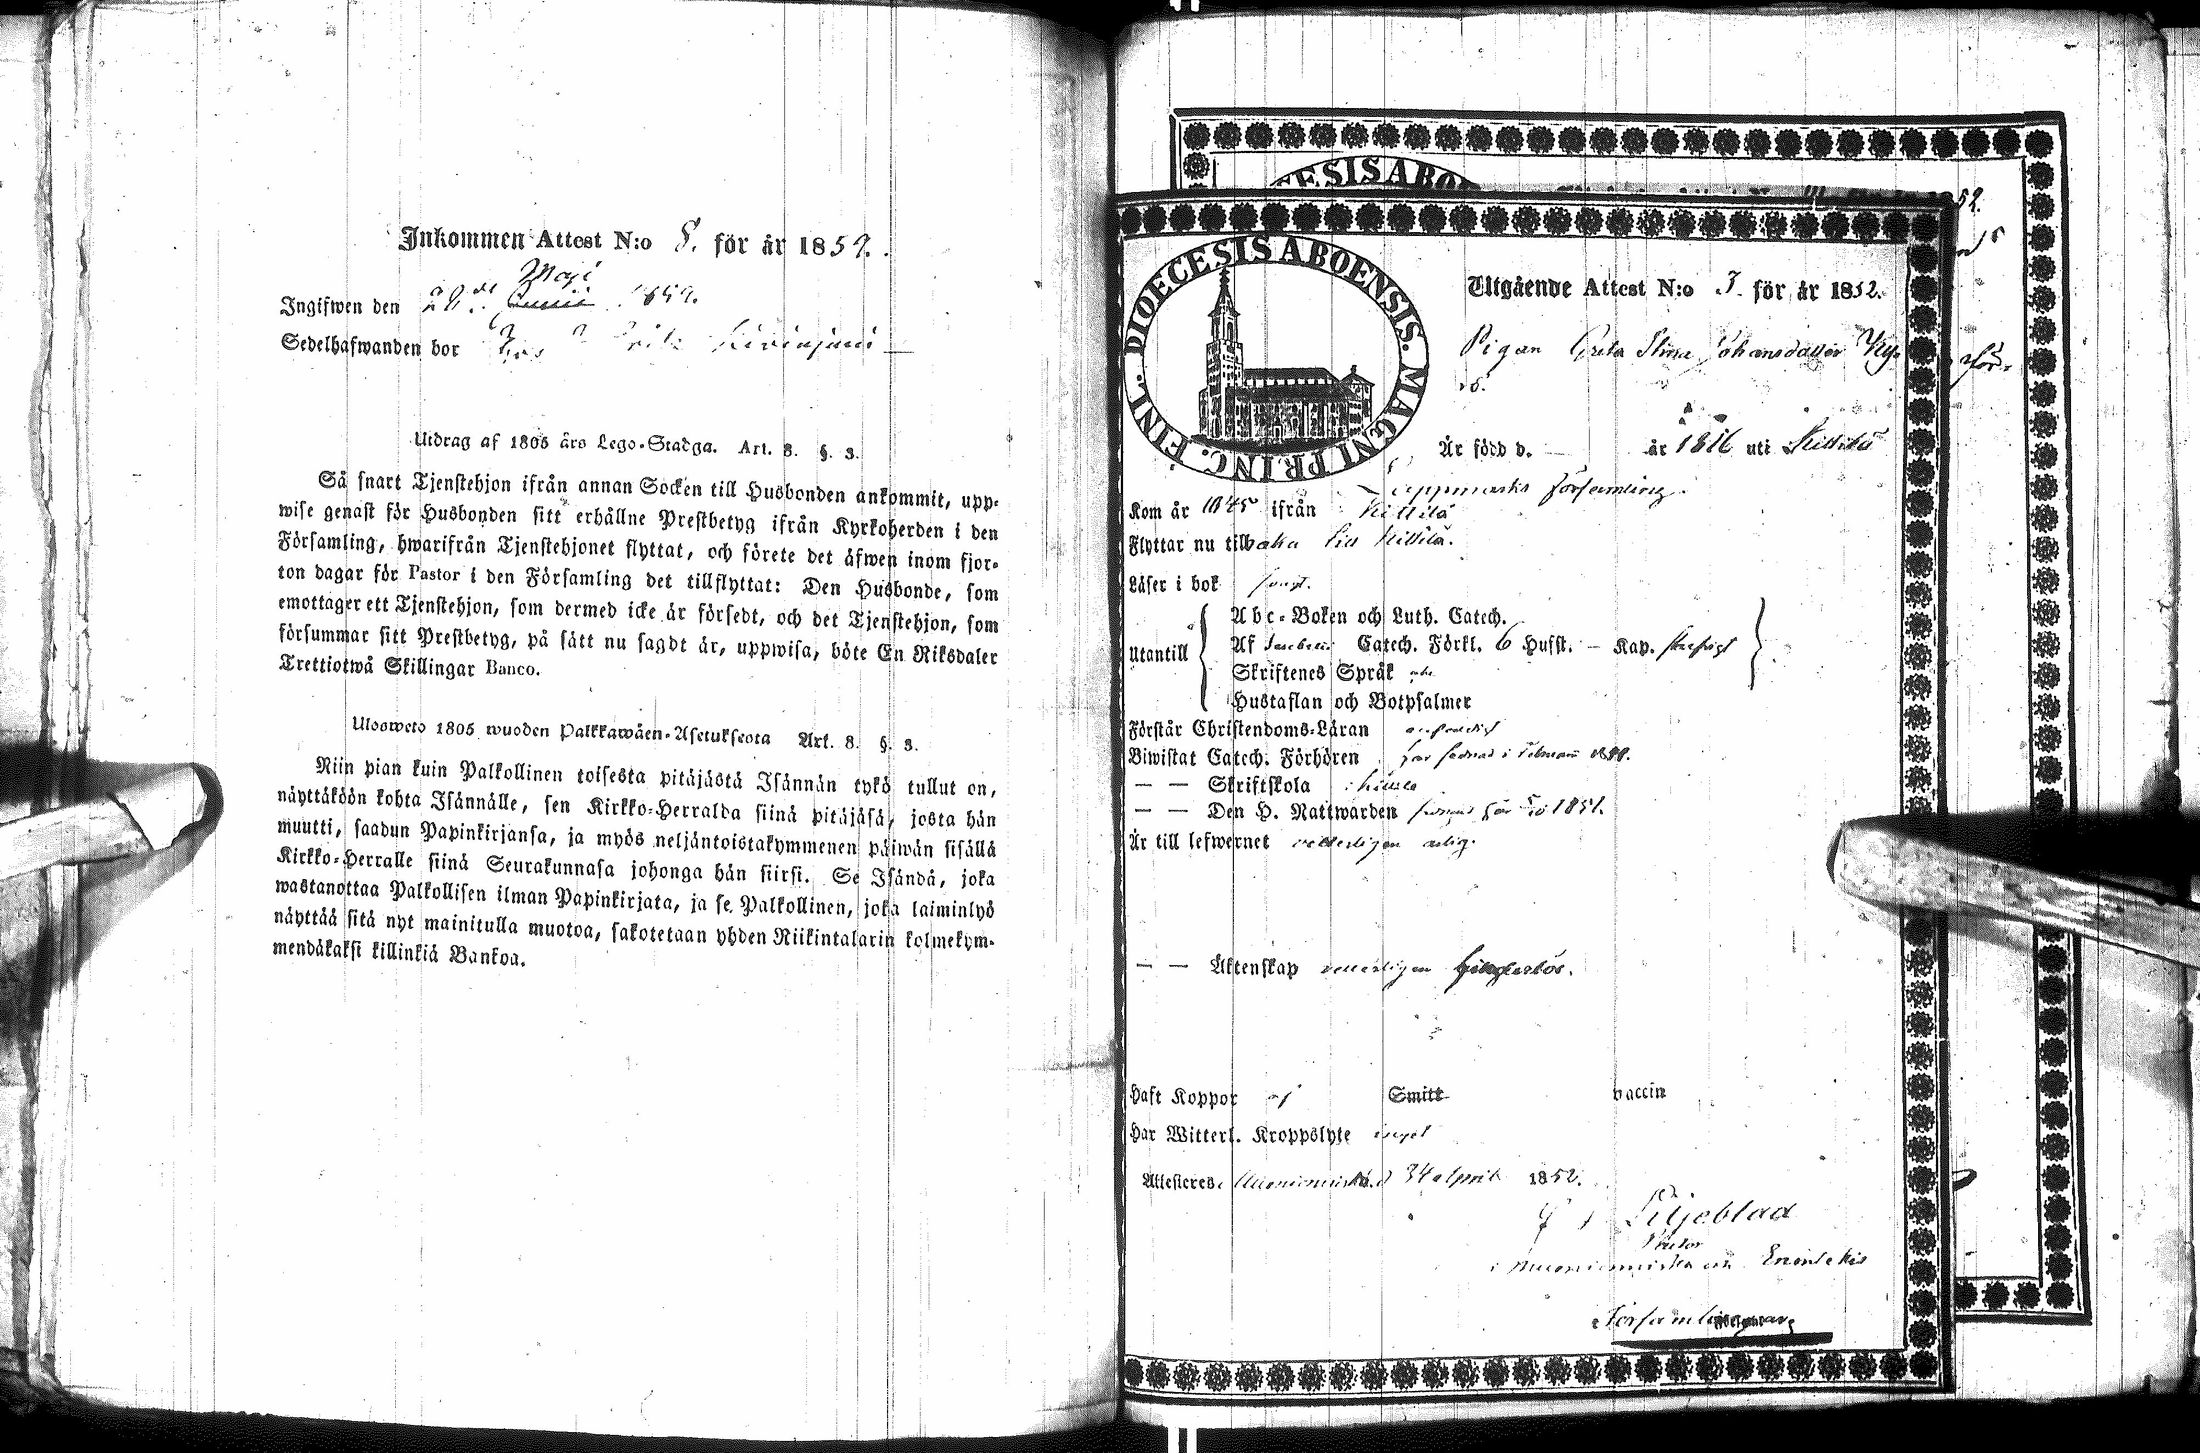 Inkommen Attest N:o 8. för år 1852.
Maji
Ingifwen den 28.de Junii 1852.
Sedelhafwanden bor hos
Utdrag af 1805 års Lego-Stadga. Art. 8. §. 3.
Så snart Tjenstehjon ifrån annan Socken till Husbonden ankommit, upp-
wise genast för Husbonden sitt erhållne Prestbetyg ifrån Kyrkoherden i den
Församling, hwarifrån Tjenstehjonet flyttat, och förete det äfwen inom fjor-
ton dagar för Pastor i den Församling det tillflyttat: Den Husbonde, som
emottager ett Tjenstehjon, som dermed icke är försedt, och det Tjenstehjon, som
försummar sitt Prestbetyg, på sätt nu sagdt är, uppwisa, böte En Riksdaler
Trettiotwå Skillingar Banco.
Ulosweto 1805 wuoden Palkkawäen-Asetuksesta Art. 8. §. 3.
Niin pian kuin Palkollinen toisesta pitäjästä Isännän tykö tullut on,
näyttäköön kohta Isännälle, sen Kirkko-Herralda siinä pitäjäsä, josta hän
muutti, saadun Papinkirjansa, ja myös neljäntoistakymmenen päiwän sisällä
Kirkko-Herralle siinä Seurakunnasa johonga hän siirsi. Se Isändä, joka
wastanottaa Palkollisen ilman Papinkirjata, ja se Palkollinen, joka laiminlyö
näyttää sitä nyt mainitulla muotoa, sakotetaan yhden Riikintalarin kolmekym-
mendäkaksi killinkiä Bankoa.
DIOECESIS ABO
52.
DIOECESIS ABOENSIS. MAGNI PRINC. FINL.
Utgående Attest N:o 3. för år 1852.
Pigan Greta Stina Johansdotter
Är född d. år 1816 uti Kittilä
Lappmarks församling.
Kom år 1845 ifrån Kittilä
Flyttar nu tillbaka till Kittilä.
Läser i bok
Abc-Boken och Luth. Catech.
Utantill Af Catech. Förkl. 6 Hufst. - Kap.
Skriftenes Språk
Hustaflan och Botpsalmer
Förstår Christendoms-Läran
Biwistat Catech. Förhören
— — Skriftskola
— — Den H. Nattwarden 1851.
Är till lefwernet veterligen ärlig.
— — Äktenskap veterligen hinderlös.
Haft Koppor ej Smitt vaccin
Har Witterl. Kroppslyte inget
Attesteras, Muonionniska d 24 April 1852.
Liljeblad
Pastor
i Muonionniska och Enontekis
Församlingar